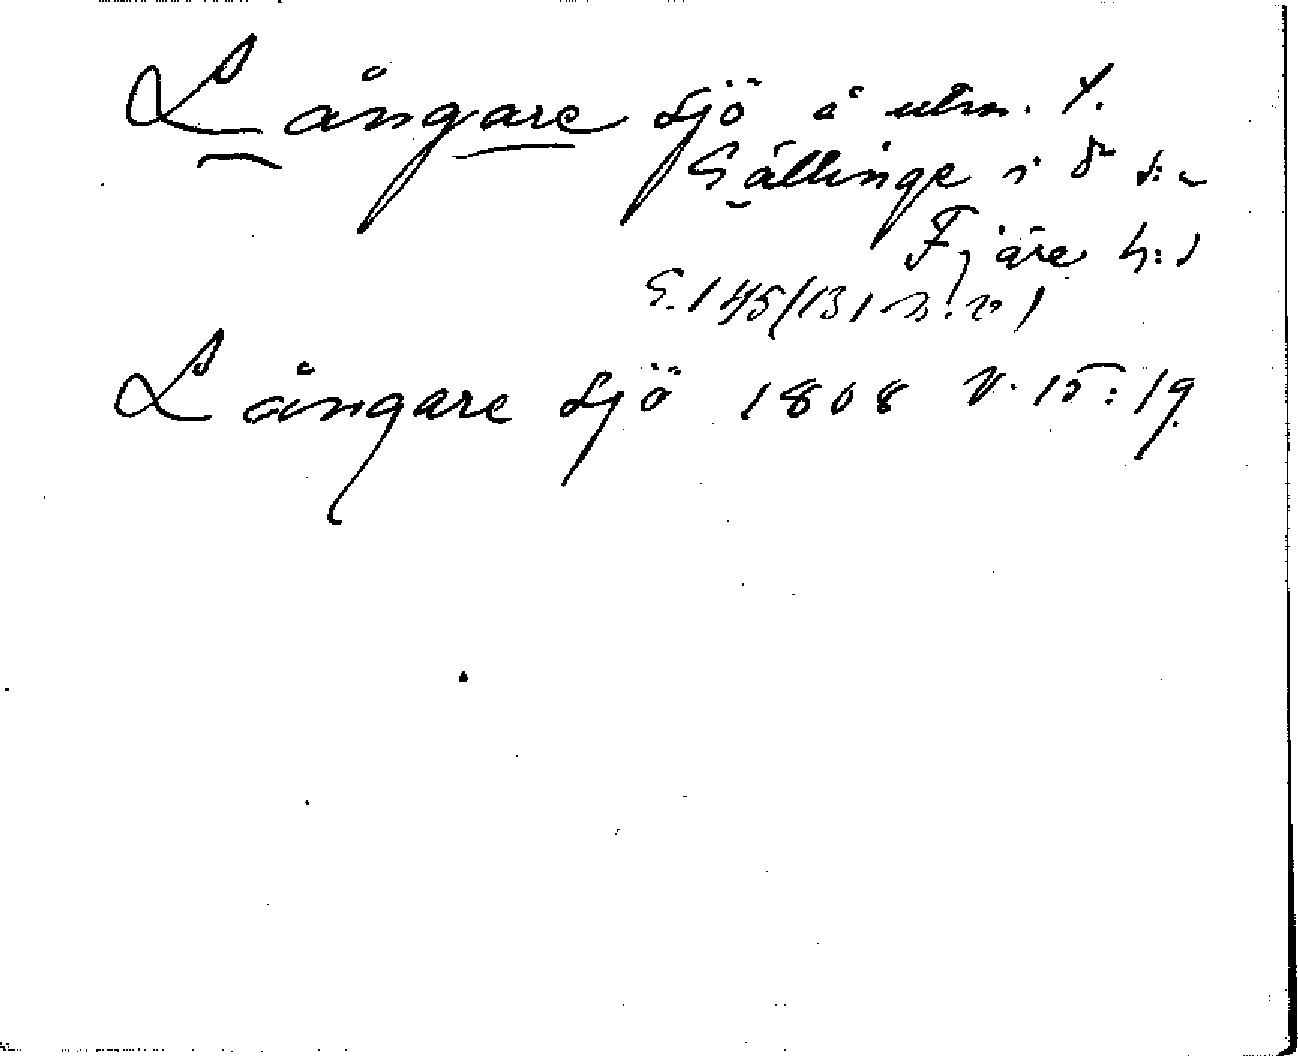 Långare sjö å utm. t.
Gällinge i d s:n
Fjäre h:d
G. 145/131
Långare sjö 1808 V. 15:19